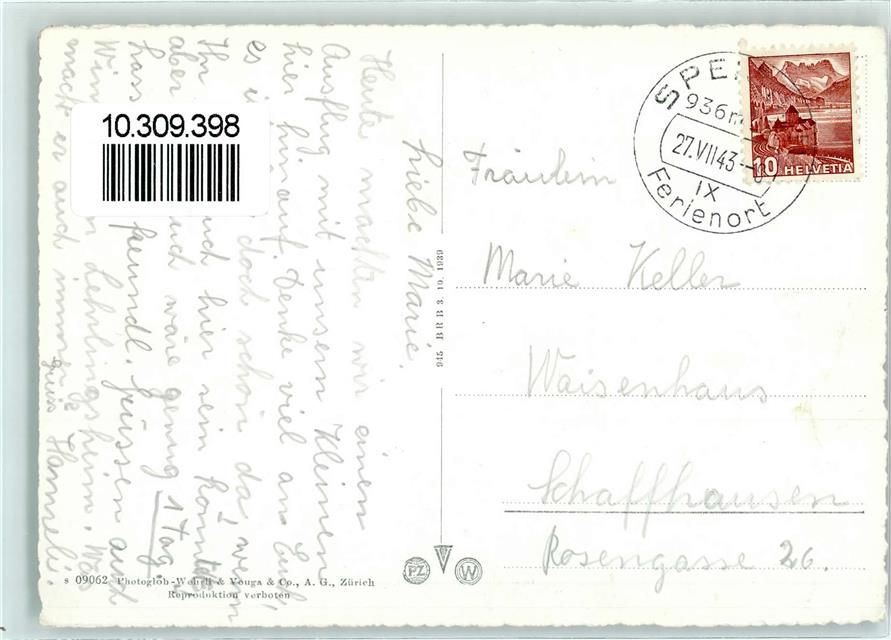 10.309.398
Liebe Marie.
Heute machten wir einen
Ausflug mit unsern Kleinen
hier hinauf. Denke viel an Euch,
es doch schon da wenn
Ihr auch hier sein könntet
aber auch wäre genug 1 Tag
freundl. Grüssen auch
Lehrlingsheim. Was
macht er auch immer
Gruss
Hanneli.
945 BRB 3. 10. 1939
S 09062 Photoglob-Wehrli & Vouga & Co., A. G., Zürich
Reproduktion verboten
PZ W
SPE
936m
27.VII43
IX
Ferienort
10 HELVETIA
Fräulein
Marie Keller
Waisenhaus
Schaffhausen
Rosengasse 26.